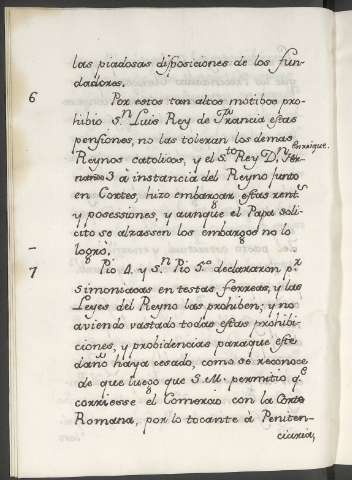 las piadosas disposiciones de los fun-
dadores.
6 Por estos tan altos motibos pro-
hibio S.n Luis Rey de Francia estas
pensiones, no las toleran los demas
Reynos catolicos, y el s.to Rey D.n Henrrique
3 à instancia del Reyno junto
en Cortes, hizo embargar estas rent.s
y posessiones, y aunque el Papa soli-
cito se alzassen los embargos no lo
logrò.
7 Pio 4. y S.n Pio 5.o declararon p.r
simoniacas en testas ferreas, y las
Leyes del Reyno las prohiben; y no
aviendo vastado todas estas prohibi-
ciones, y probidencias paraque este
daño haya cesado, como se reconoce
de que luego que S.M. permitio q.e
corriesse el Comercio con la Corte
Romana, por lo tocante à Peniten-
ciaria,